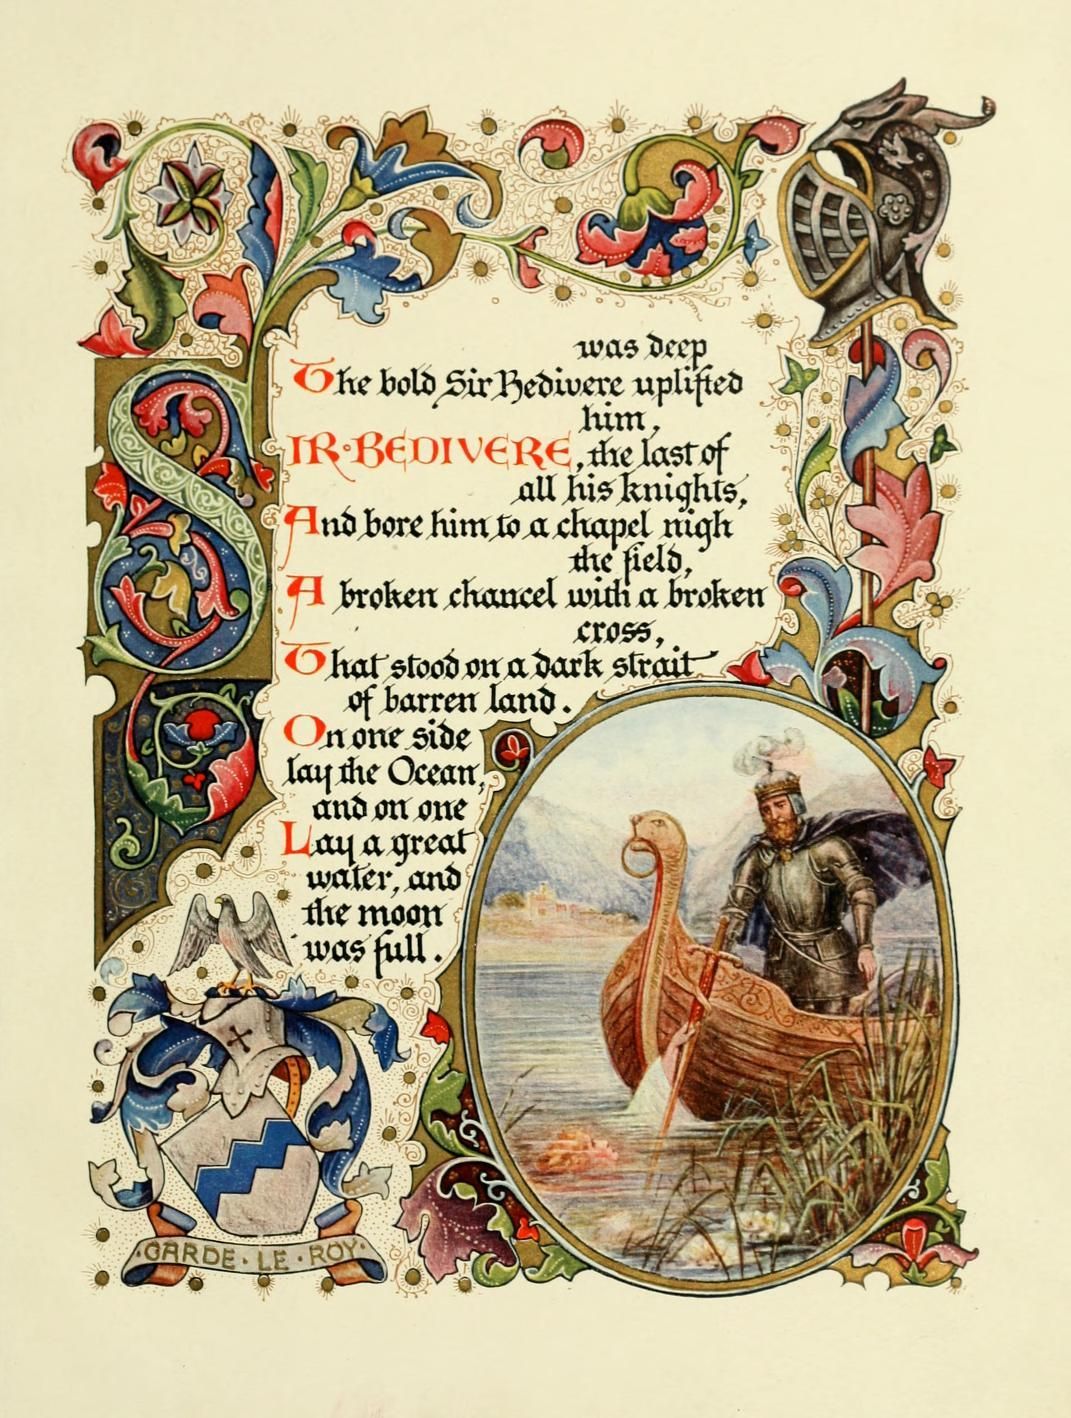 was deep
The bold Sir Bedivere uplifted
him,
SIR·BEDIVERE, the last of
all his knights,
And bore him to a chapel nigh
the field,
A broken chancel with a broken
cross,
That stood on a dark strait
of barren land.
On one side
lay the Ocean,
and on one
Lay a great
water, and
the moon
was full.
·GARDE·LE·ROY·